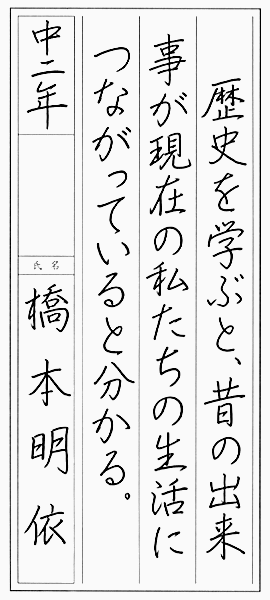 歴史を学ぶと、昔の出来
事が現在の私たちの生活に
つながっていると分かる。
中二年
氏名
橋本明依